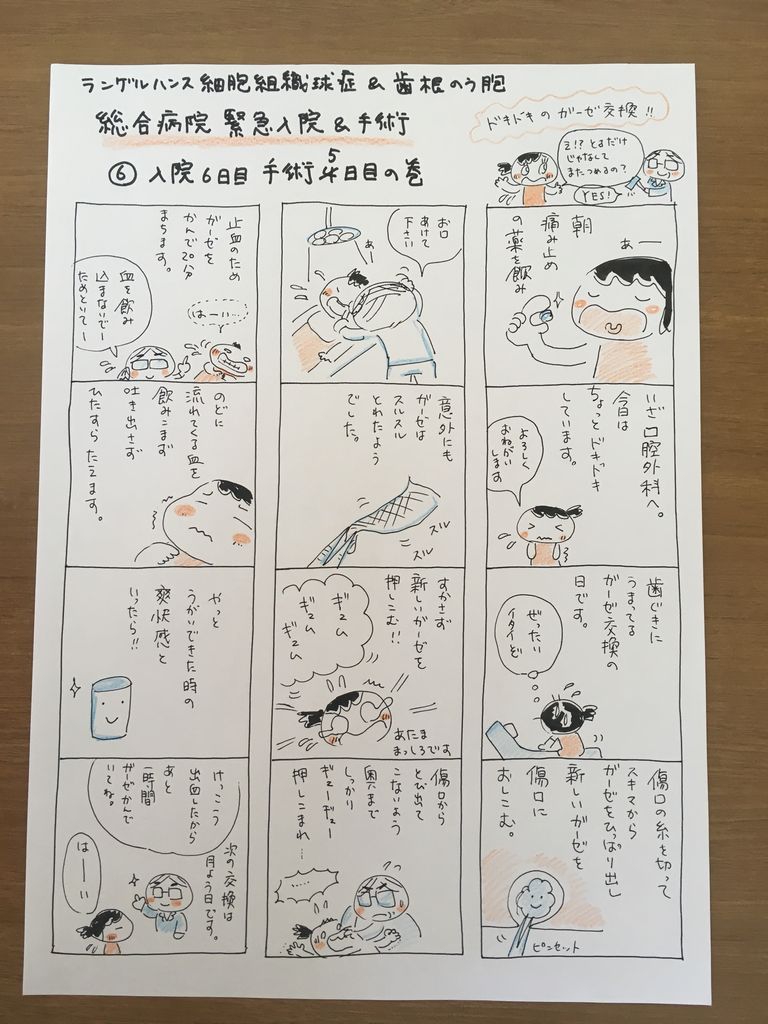 ランゲルハンス細胞組織球症&歯根のう胞
総合病院 緊急入院&手術
⑥入院6日目 手術5日目の巻
ドキドキのガーゼ交換!!
え!?とるだけ
じゃなくて
またつめるの?
YES!
朝
痛み止め
の薬を飲み
あー
いざ口腔外科へ。
今日は
ちょっとドキドキ
しています。
よろしく
おねがい
します
歯ぐきに
うまってる
ガーゼ交換の
日です。
ぜったい
イタイぞ
傷口の糸を切って
スキマから
ガーゼをひっぱり出し
新しいガーゼを
傷口に
おしこむ。
ピンセット
お口
あけて
下さい
あー
意外にも
ガーゼは
スルスル
とれたよう
でした。
スル
スル
すかさず
新しいガーゼを
押しこむ!!
ギュム
ギュム
ギュム
あたま
まっしろです
傷口から
とび出て
こないよう
奥まで
しっかり
ギューギュー
押しこまれ…
……
止血のため
ガーゼを
かんで20分
まちます。
はーい…
血を飲み
込まないでー
ためといてー
のどに
流れてくる血を
飲みこまず
吐き出さず
ひたすらたえます。
やっと
うがいできた時の
爽快感と
いったら!!
けっこう
出血したから
あと
一時間
ガーゼかんで
てね。
次の交換は
月よう日です。
はーい